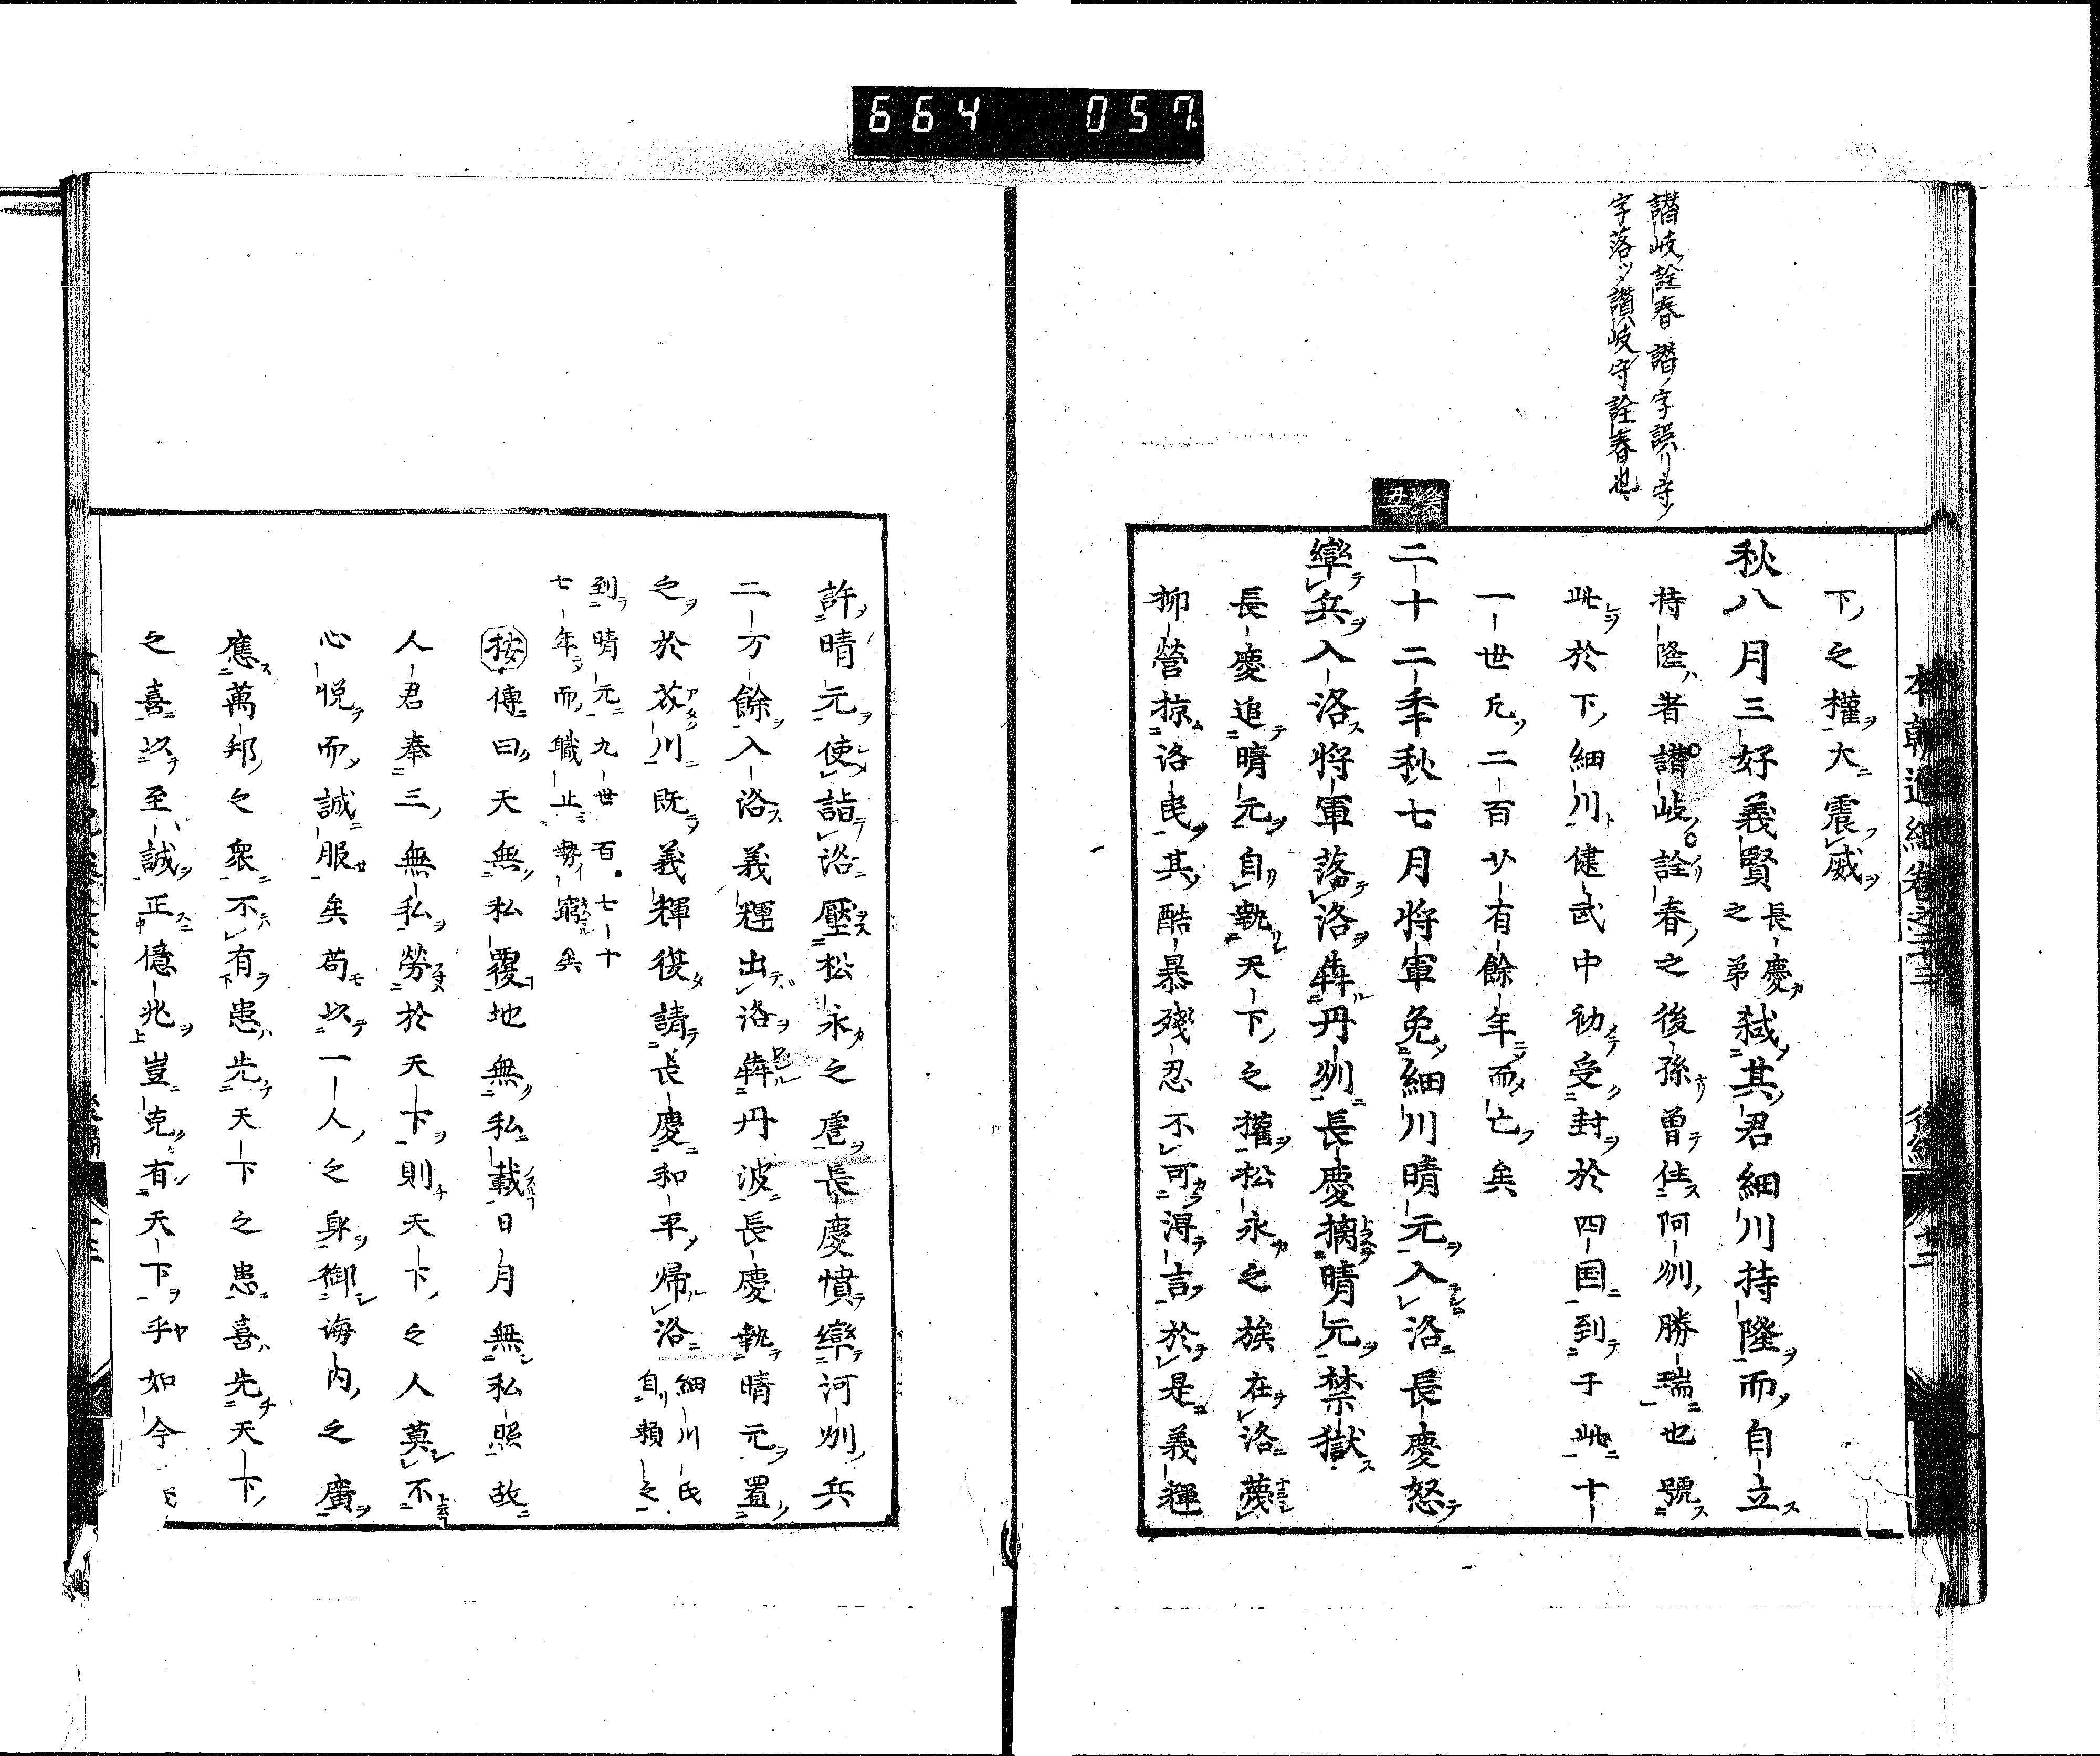 664 057
讃岐詮春讃ノ字誤リ守ノ
字落ツ讃岐守詮春也
癸丑
本朝通紀巻之二十三 後編 十二
下之權大震威
秋八月三好義賢長慶之弟弑其君細川持隆而自立
持隆者讃岐詮春之後孫曽住阿州勝瑞也號
此於下細川健武中初受封於四国到于此十
一世凡二百廿有餘年而亡矣
二十二季秋七月将軍免細川晴元入洛長慶怒
率兵入洛将軍落洛犇丹州長慶擒晴元禁獄
長慶追晴元自執天下之權松永之族在洛蔑
柳營掠洛民其酷暴残忍不可得言於是義輝
許晴元使詣洛壓松永之虐長慶憤率河州兵
二万餘入洛義輝出洛犇丹波長慶執晴元置
之於芥川既義輝復請長慶和平帰洛細川氏自頼之
到晴元九世百七十
七年而職止勢窮矣
按傳曰天無私覆地無私載日月無私照故
人君奉三無私勞於天下則天下之人莫不
心悦而誠服矣苟以一人之身御海内之廣
應萬邦之衆不有患先天下之患喜先天下
之喜以至誠正億兆豈克有天下乎如今